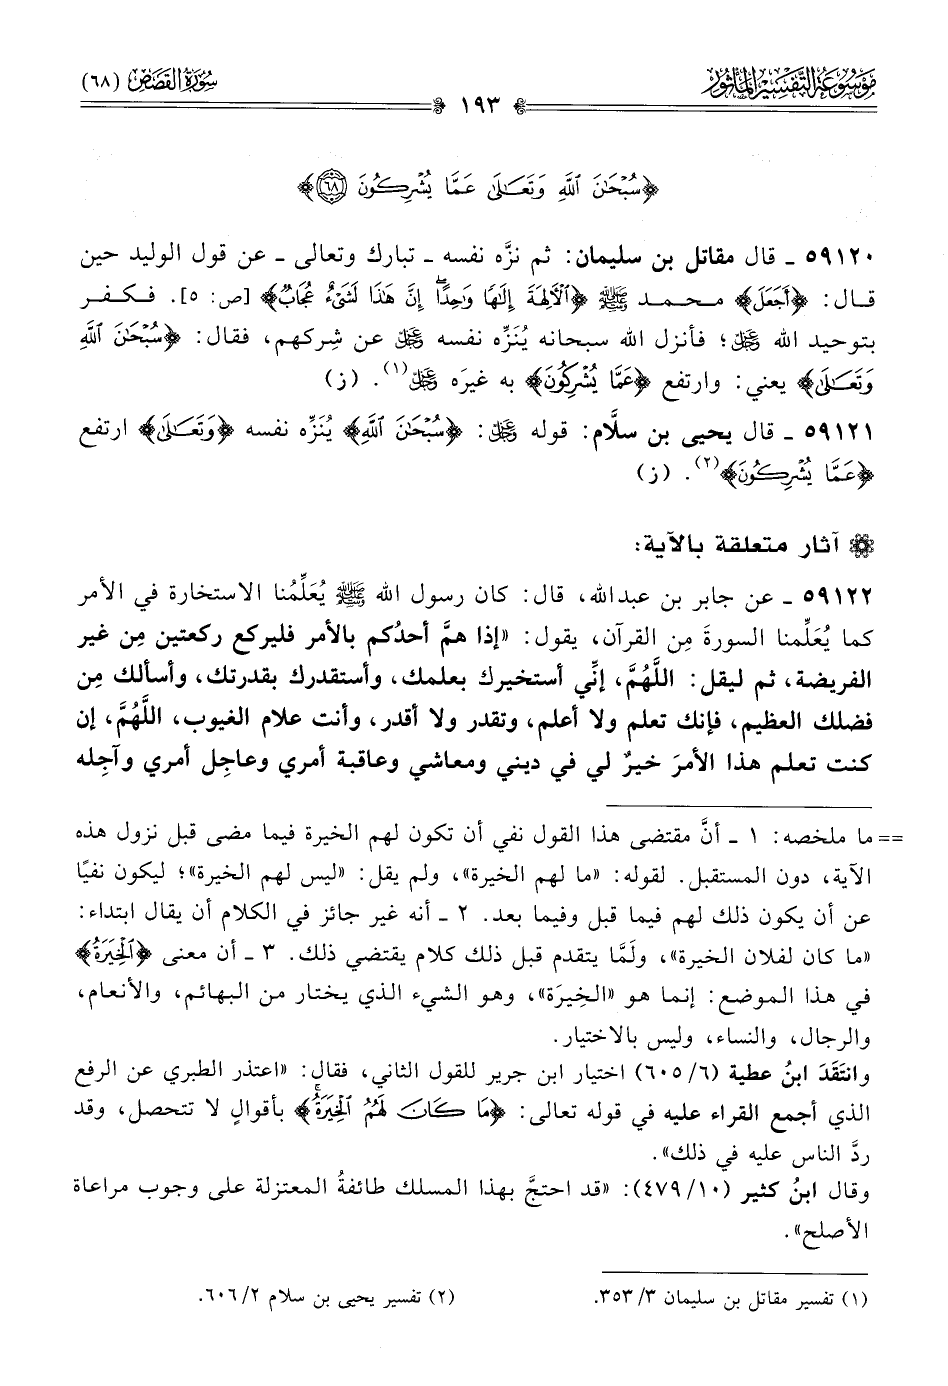 موسوعة التفسير المأثور
سورة القصص (٦٨)
١٩٣
﴿سُبْحَانَ اللَّهِ وَتَعَالَى عَمَّا يُشْرِكُونَ ٦٨﴾
٥٩١٢٠ ـ قال مقاتل بن سليمان: ثم نزَّه نفسه ـ تبارك وتعالى ـ عن قول الوليد حين
قال: ﴿أَجَعَلَ﴾ محمد ﷺ ﴿الْآلِهَةَ إِلَهًا وَاحِدًا إِنَّ هَذَا لَشَيْءٌ عُجَابٌ﴾ [ص: ٥]. فكفر
بتوحيد الله ﷿؛ فأنزل الله سبحانه يُنَزِّه نفسه ﷿ عن شِركهم، فقال: ﴿سُبْحَانَ اللَّهِ
وَتَعَالَى﴾ يعني: وارتفع ﴿عَمَّا يُشْرِكُونَ﴾ به غيرَه ﷿(١). (ز)
٥٩١٢١ ـ قال يحيى بن سلَّام: قوله ﷿: ﴿سُبْحَانَ اللَّهِ﴾ يُنَزِّه نفسه ﴿وَتَعَالَى﴾ ارتفع
﴿عَمَّا يُشْرِكُونَ﴾(٢). (ز)
آثار متعلقة بالآية:
٥٩١٢٢ ـ عن جابر بن عبدالله، قال: كان رسول الله ﷺ يُعَلِّمُنا الاستخارة في الأمر
كما يُعَلِّمنا السورةَ مِن القرآن، يقول: «إذا همَّ أحدُكم بالأمر فليركع ركعتين مِن غير
الفريضة، ثم ليقل: اللَّهُمَّ، إنِّي أستخيرك بعلمك، وأستقدرك بقدرتك، وأسألك مِن
فضلك العظيم، فإنك تعلم ولا أعلم، وتقدر ولا أقدر، وأنت علام الغيوب، اللَّهُمَّ، إن
كنت تعلم هذا الأمرَ خيرٌ لي في ديني ومعاشي وعاقبة أمري وعاجِل أمري وآجِله
== ما ملخصه: ١ ـ أنَّ مقتضى هذا القول نفي أن تكون لهم الخيرة فيما مضى قبل نزول هذه
الآية، دون المستقبل. لقوله: «ما لهم الخيرة»، ولم يقل: «ليس لهم الخيرة»؛ ليكون نفيًا
عن أن يكون ذلك لهم فيما قبل وفيما بعد. ٢ ـ أنه غير جائز في الكلام أن يقال ابتداء:
«ما كان لفلان الخيرة»، ولَمَّا يتقدم قبل ذلك كلام يقتضي ذلك. ٣ ـ أن معنى ﴿الْخِيَرَةُ﴾
في هذا الموضع: إنما هو «الخِيرَة»، وهو الشيء الذي يختار من البهائم، والأنعام،
والرجال، والنساء، وليس بالاختيار.
وانتَقَدَ ابنُ عطية (٦/ ٦٠٥) اختيار ابن جرير للقول الثاني، فقال: «اعتذر الطبري عن الرفع
الذي أجمع القراء عليه في قوله تعالى: ﴿مَا كَانَ لَهُمُ الْخِيَرَةُ﴾ بأقوالٍ لا تتحصل، وقد
ردَّ الناس عليه في ذلك».
وقال ابنُ كثير (١٠/ ٤٧٩): «قد احتجَّ بهذا المسلك طائفةُ المعتزلة على وجوب مراعاة
الأصلح».
(١) تفسير مقاتل بن سليمان ٣/ ٣٥٣.
(٢) تفسير يحيى بن سلام ٢/ ٦٠٦.